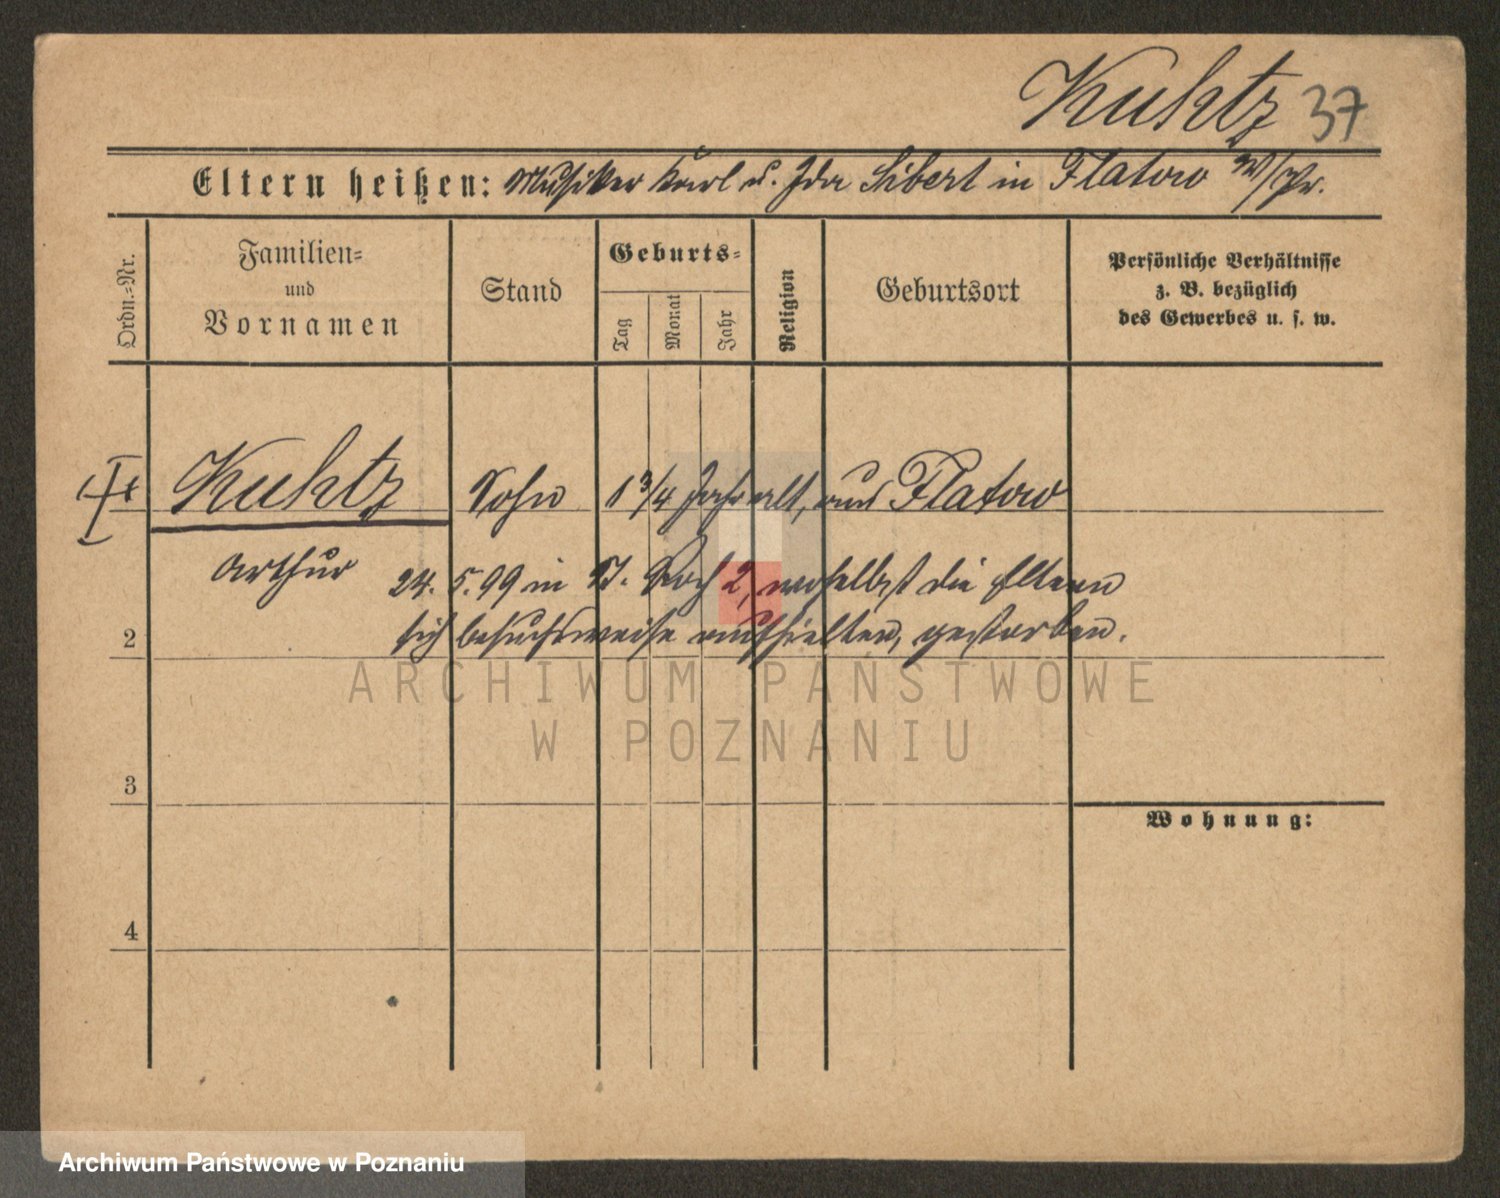 Kuhtz 37
Eltern heißen: Musiker Karl u. Ida Sibert in Flatow W/Pr.
Ordn.-Nr.
Familien-
und
Vornamen
Stand
Geburts-
Tag
Monat
Jahr
Religion
Geburtsort
Persönliche Verhältnisse
z. B. bezüglich
des Gewerbes u. s. w.
Kuhtz Sohn 1 3/4 Jahr alt, aus Flatow
Arthur
24. 5. 99 in St. Roch 2, woselbst die Eltern
sich besuchsweise aufhielten, gestorben.
2
ARCHIWUM PAŃSTWOWE
W POZNANIU
3
Wohnung:
4
Archiwum Państwowe w Poznaniu